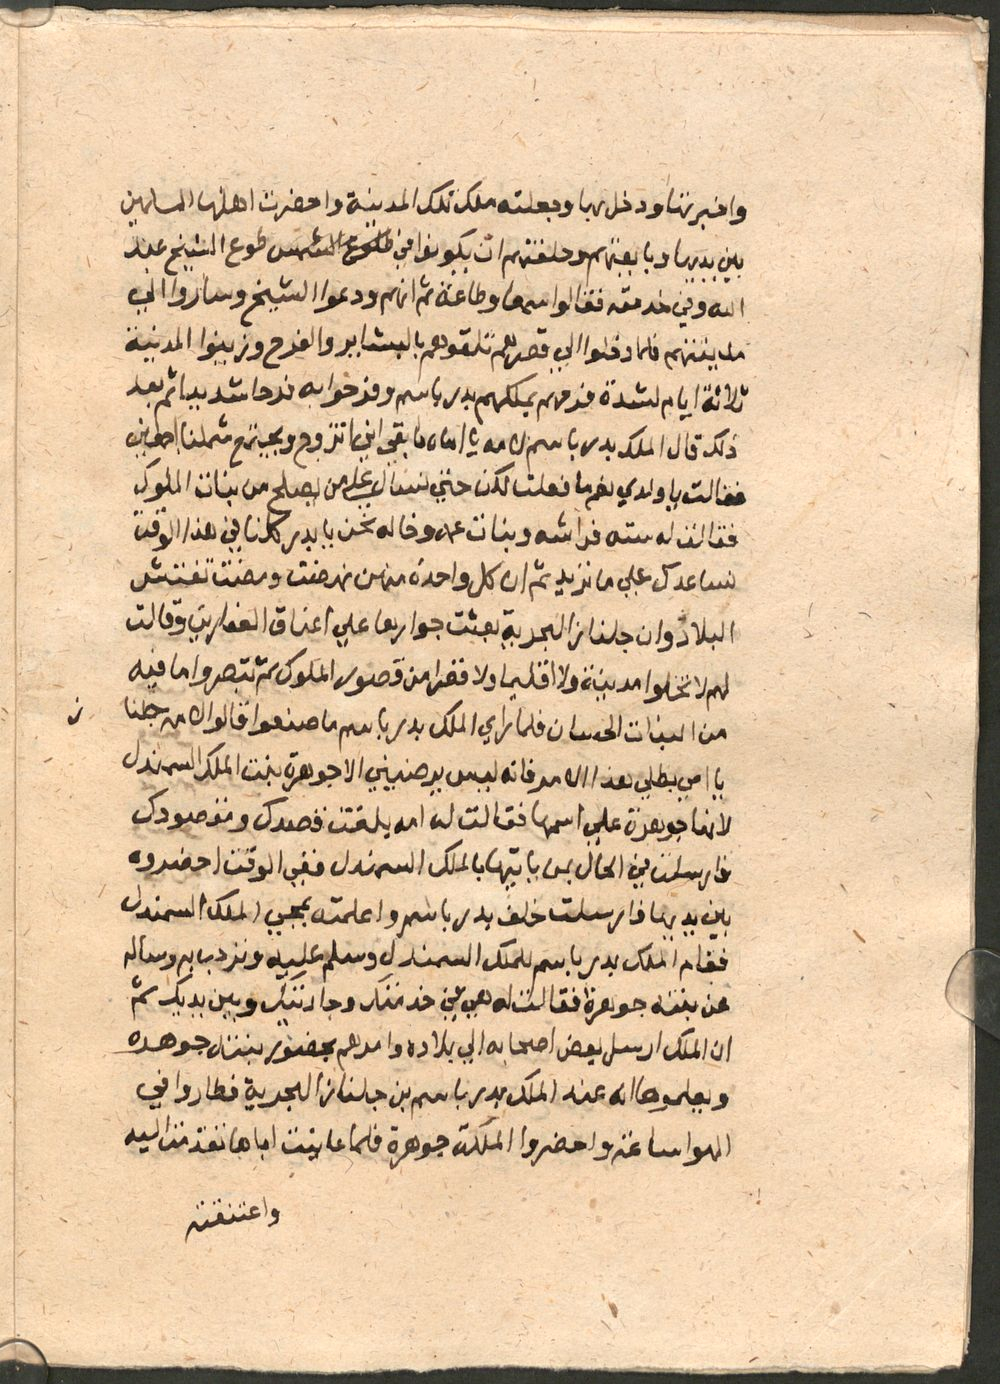 واخبرتها ودخل بها وجعلته ملك تلك المدينة واحضرت اهلها المسلمين
بين يديها وبايعتهم وحلفتهم ان يكونوا في طوع الشيخ عبد
الله وفي خدمته فقالوا سمعا وطاعة ثم انهم ودعوا الشيخ وساروا الي
مدينتهم فلما دخلوا الي قصرهم تلقوهم بالبشاير والفرح وزينوا المدينة
ثلاثة ايام لشدة فرحهم بملكهم بدر باسم وفرحوا به فرحا شديدا ثم بعد
ذلك قال الملك بدر باسم لامه يا اماه ما بقي الا اني اتزوج ويجتمع شملنا اجمعين
فقالت يا ولدي نعم ما فعلت لكن حتي نسال علي من يصلح من بنات الملوك
فقالت له سته فراشه وبنات عمه وخاله نحن يا بدر كلنا في هذا الوقت
نساعدك علي ما تريد ثم ان كل واحدة منهن نهضت ومضت تفتش
البلاد وان جلناز البحرية بعثت جوارها علي اعناق العفاريت وقالت
لهم لا تخلوا مدينة ولا اقليما ولا قصرا من قصور الملوك ثم تبصروا ما فيه
من البنات الحسان فلما راي الملك بدر باسم ما صنعوا قال لامه جلنا
ز
يا امي بطلي هذا الامر فانه ليس يرضيني الا جوهرة بنت الملك السمندل
لانها جوهرة علي اسمها فقالت له امه بلغت قصدك ومقصودك
فارسلت في الحال من ياتيها بالملك السمندل ففي الوقت احضروه
بين يديها فارسلت خلف بدر باسم واعلمته بمجي الملك السمندل
فقام الملك بدر باسم للملك السمندل وسلم عليه وترحب به وساله
عن بنته جوهرة فقالت له هي في خدمتك وجاريتك وبين يديك ثم
ان الملك ارسل بعض اصحابه الي بلاده وامرهم بحضور بنته جوهره
ويعلموها انه عند الملك بدر باسم بن جلناز البحرية فطاروا في
الهوا ساعة واحضروا الملكة جوهرة فلما عاينت اباها تقدمت اليه
واعتنقته